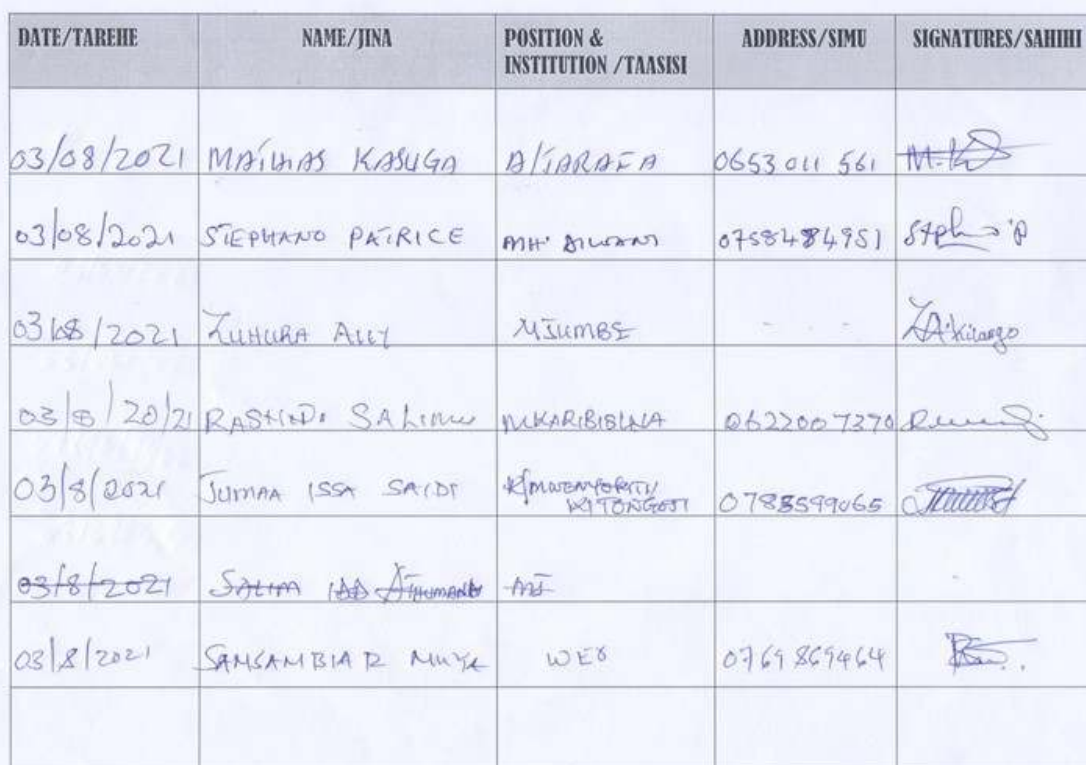 DATE/TAREHE NAME/JINA POSITION & INSTITUTION /TAASISI ADDRESS/SIMU SIGNATURES/SAHIHI
03/08/2021 MATHIAS KASUGA A/TARAFA 0653 011 561 M.K
03/08/2021 STEPHANO PATRICE MH' DIWANI 0758484951 Steph P
03/08/2021 ZUHURA ALLY MJUMBE ZA Kilango
03/8/2021 RASHIDI SALIMU MKARIBISHA 0622007370
03/8/2021 JUMAA ISSA SAIDI K/MWENYEKITI KITONGOJI 0788599065
03/8/2021 SALIM IDD ATHUMANI
03/8/2021 SAMSAMBIA R WEO 0769869464